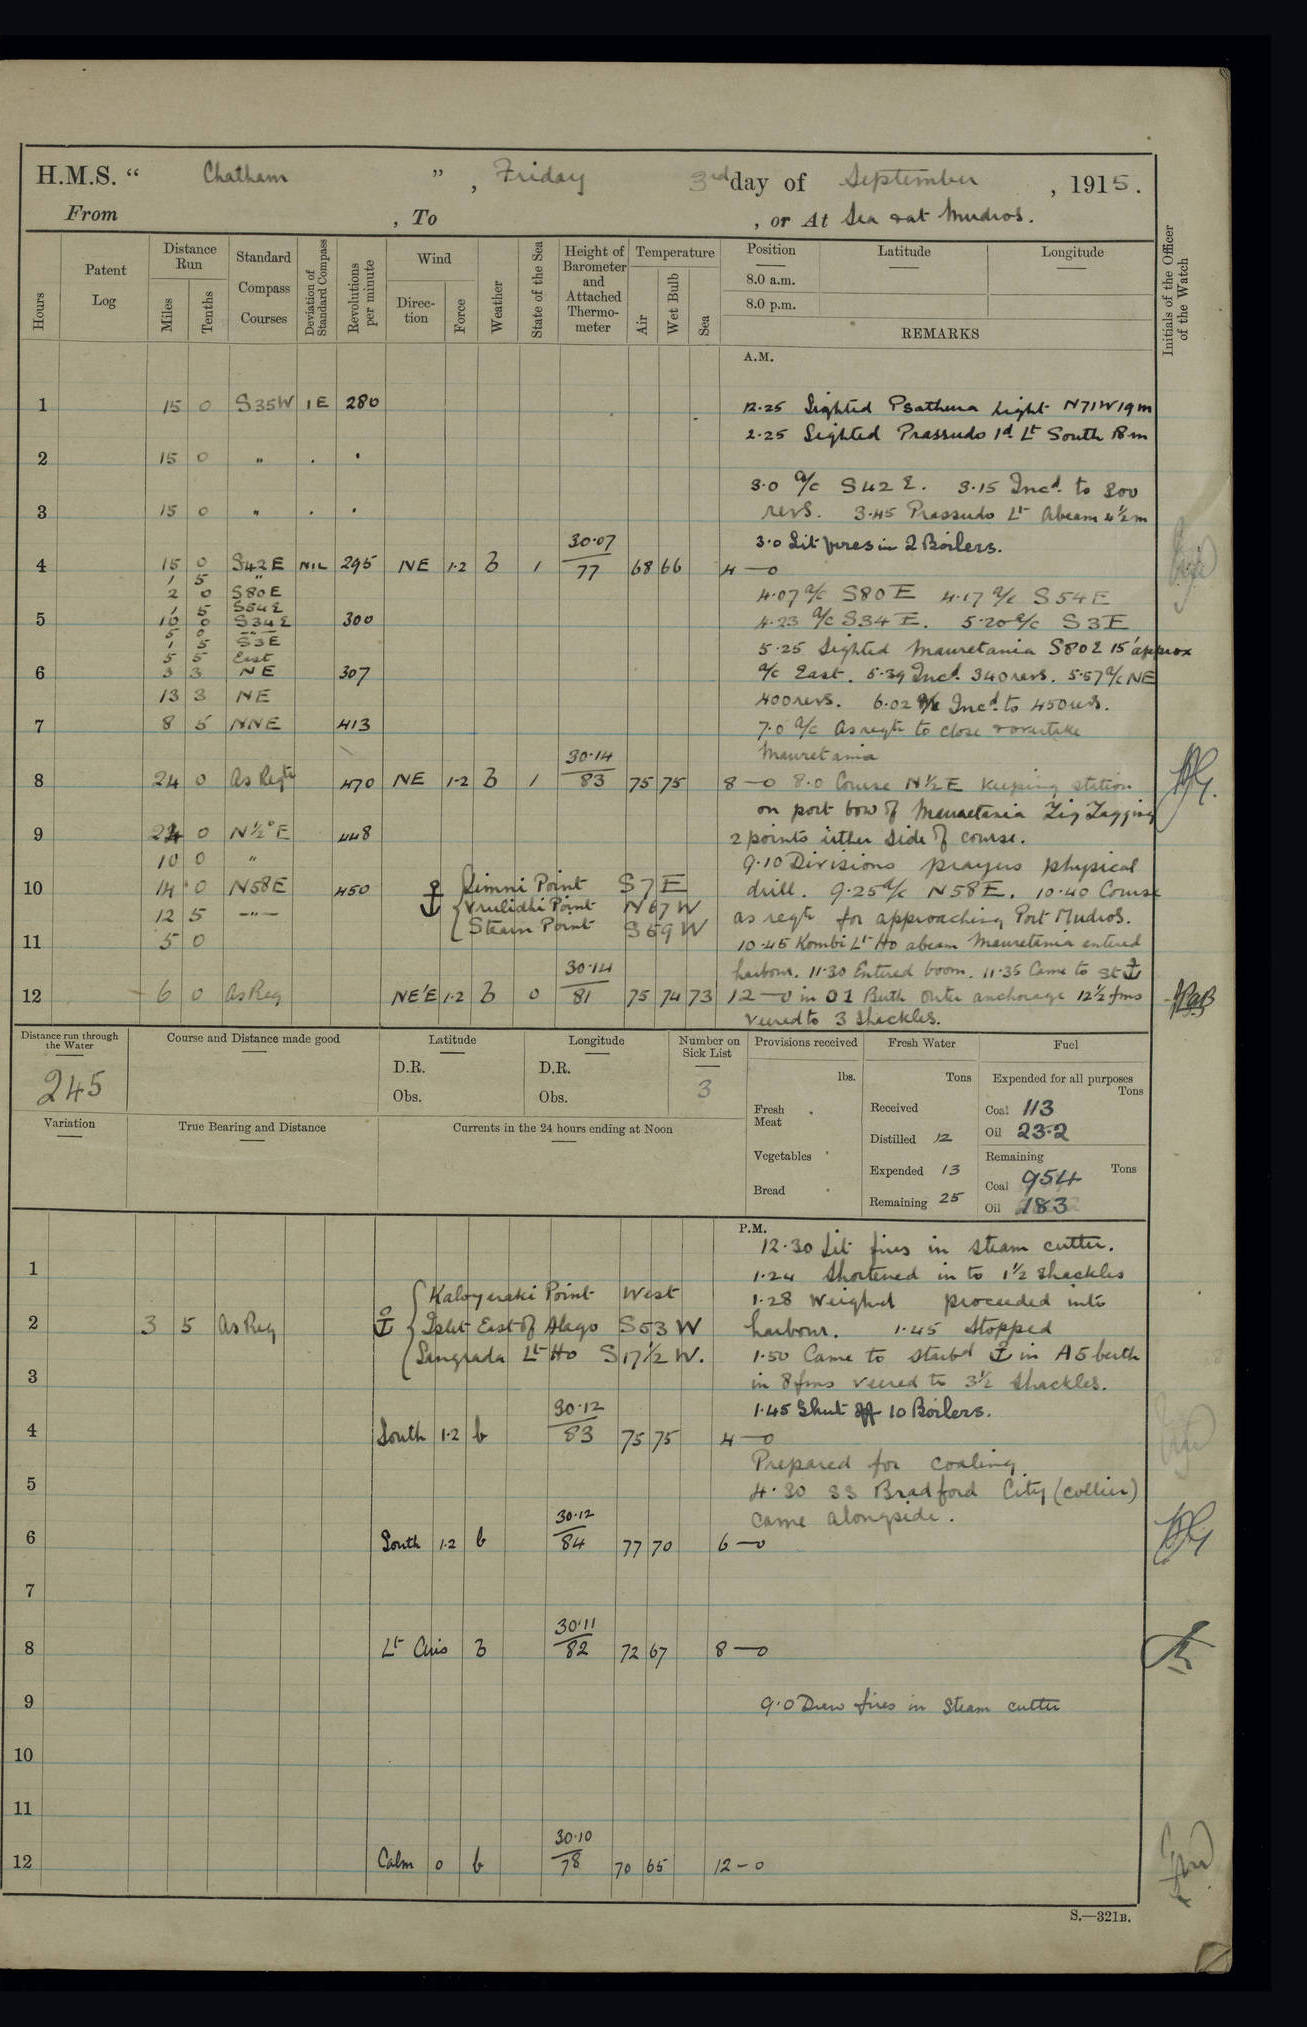 H.M.S. “ Chatham ” , Friday 3rd day of September , 1915.
From , To , or At Sea & at Mudros.
Hours
Patent Log
Distance Run
Miles
Tenths
Standard Compass Courses
Deviation of Standard Compass
Revolutions per minute
Wind
Direction
Force
Weather
State of the Sea
Height of Barometer and Attached Thermometer
Temperature
Air
Wet Bulb
Sea
Position
8.0 a.m.
8.0 p.m.
Latitude
Longitude
REMARKS
Initials of the Officer of the Watch
A.M.
1 15 0 S35W 1E 280 12.25 Sighted Psathura Light N71W 19m
2.25 Sighted Prassudo Id Lt South 18m
2 15 0 " . .
3.0 a/c S42E. 3.15 Incd. to 300
3 15 0 " . . revs. 3.45 Prassudo Lt Abeam 4½m
30.07 3.0 Lit fires in 2 Boilers.
4 15 0 S42E NIL 295 NE 1.2 B 1 77 68 66 4—0
1 5 "
2 0 S80E 4.07 a/c S80E 4.17 a/c S54E
1 5 S54E
5 10 0 S34E 300 4.23 a/c S34E. 5.20 a/c S3E
5 0 " "
1 5 S3E 5.25 Sighted Mauretania S80E 15' approx
5 5 East
6 3 3 NE 307 a/c East. 5.39 Incd. 340 revs. 5.57 a/c NE
13 3 NE 400 revs. 6.02 Incd. to 450 revs.
7 8 5 NNE 413 7.0 a/c As reqte to close & overtake
30.14 Mauretania
8 24 0 As Reqte 470 NE 1.2 B 1 83 75 75 8—0 8.0 Course N½E Keeping station
on port bow of Mauretania Zig Zagging
9 24 0 N½°E 448 2 points either side of course.
10 0 " 9.10 Divisions prayers physical
10 14 0 N58E 450 Simni Point S7E drill. 9.25 a/c N58E. 10.40 Course
12 5 —"— Vrulidhi Point N67W as reqte for approaching Port Mudros.
11 5 0 Steam Point S59W 10.45 Kombi Lt Ho abeam Mauretania entered
30.14 harbour. 11.30 Entered boom. 11.35 Came to St ⚓
12 6 0 As Req NE'E 1.2 B 0 81 75 74 73 12—0 in O1 Berth Outer anchorage 12½ fms
veered to 3 Shackles.
Distance run through the Water
245
Course and Distance made good
Latitude
D.R.
Obs.
Longitude
D.R.
Obs.
Number on Sick List
3
Variation
True Bearing and Distance
Currents in the 24 hours ending at Noon
Provisions received
lbs.
Fresh Meat
Vegetables
Bread
Fresh Water
Tons
Received
Distilled 12
Expended 13
Remaining 25
Fuel
Expended for all purposes
Tons
Coal 113
Oil 23.2
Remaining
Tons
Coal 954
Oil 183
P.M.
12.30 Lit fires in steam cutter.
1 1.24 Shortened in to 1½ shackles
Kaloyeraki Point West 1.28 Weighed proceeded into
2 3 5 As Req ⚓ Islet East of Alago S53W harbour. 1.45 Stopped
Sangrada Lt Ho S17½W. 1.50 Came to starbd ⚓ in A5 berth
3 in 8 fms veered to 3½ Shackles.
30.12 1.45 Shut off 10 Boilers.
4 South 1.2 b 83 75 75 4—0
Prepared for coaling.
5 4.30 SS Bradford City (collier)
30.12 came alongside.
6 South 1.2 b 84 77 70 6—0
7
30.11
8 Lt Airs B 82 72 67 8—0
9 9.0 Drew fires in Steam cutter
10
11
30.10
12 Calm 0 b 78 70 65 12—0
S.—321B.